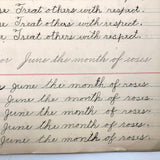 Treat others with respect.
Treat others with respect.
Treat others with respect.
June the month of roses
June the month of roses.
June the month of roses.
June the month of roses.
June the month of roses.
June the month of roses.